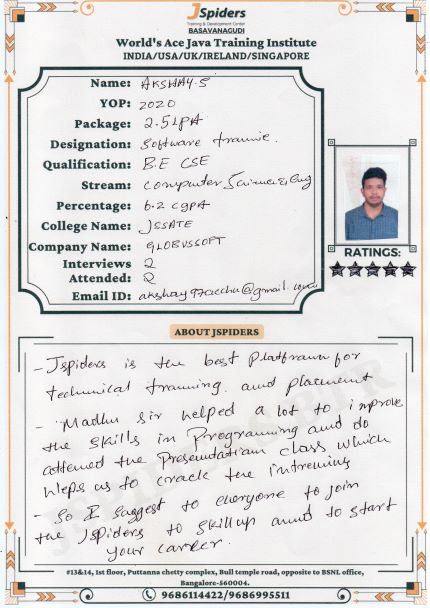 JSpiders
Training & Development Center
BASAVANAGUDI
World's Ace Java Training Institute
INDIA/USA/UK/IRELAND/SINGAPORE
Name: AKSHAY-S
YOP: 2020
Package: 2.5LPA
Designation: Software trainie.
Qualification: B.E CSE
Stream: Computer Science & Eng
Percentage: 6.2 CGPA
College Name: JSSATE
Company Name: GLOBUSSOFT
Interviews Attended: 2
Email ID: akshay97acchu@gmail.com
RATINGS:
ABOUT JSPIDERS
- Jspiders is the best Platfrawn for
technical training and placement
- Madhu sir helped a lot to improve
the skills in Programing and do
attened the Presentatiam class which
helps us to crack the intreviws
- So I suggest to everyone to join
the Jspiders to skillup and to start
your career.
#13&14, 1st floor, Puttanna chetty complex, Bull temple road, opposite to BSNL office,
Bangalore-560004.
9686114422/9686995511